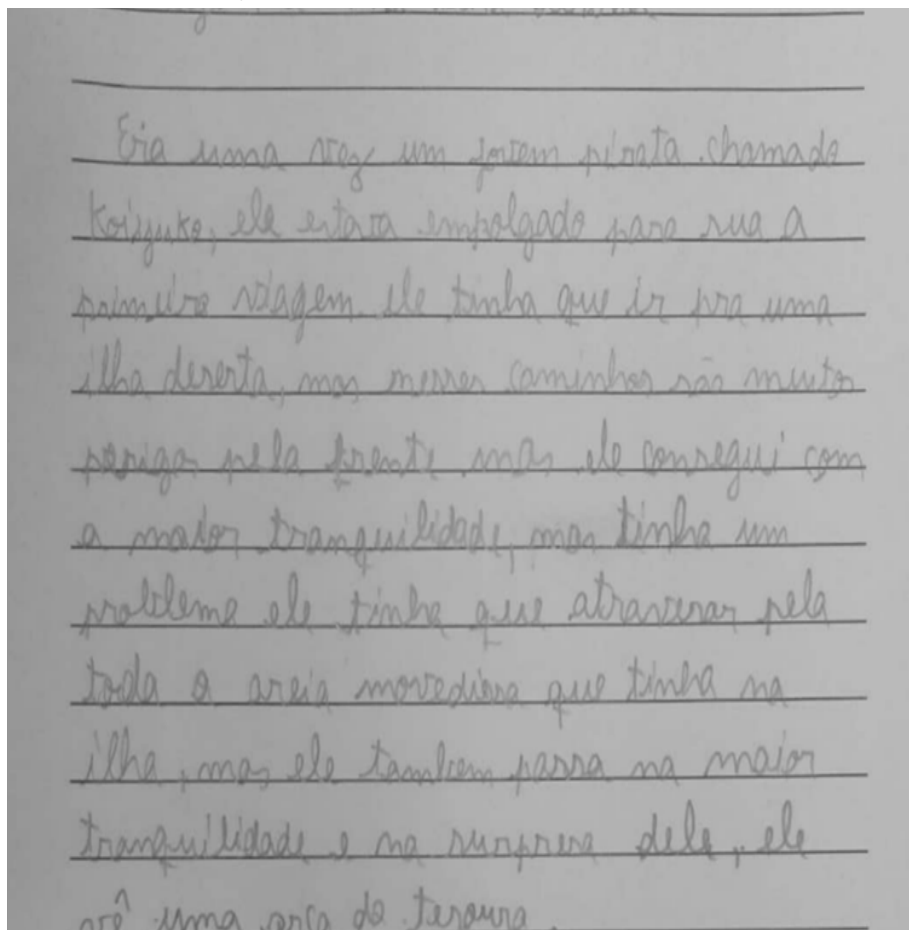 Era uma vez um jovem pirata chamado
Koiyuko, ele estava empolgado para sua a
primeira viagem ele tinha que ir pra uma
ilha deserta, mas nesses caminhos são muitos
perigo pela frente mas ele consegui com
a maior tranquilidade, mas tinha um
problema ele tinha que atravesar pela
toda a areia movediosa que tinha na
ilha, mas ele tambem passa na maior
tranquilidade e na surpresa dele, ele
vê uma arca do tersoura.